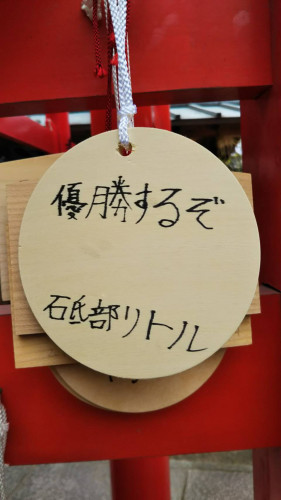 優勝するぞ
石砥部リトル